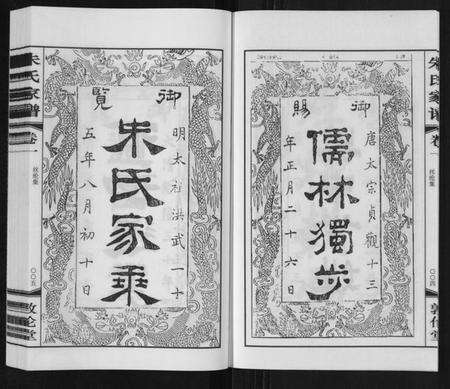 御賜
唐太宗貞觀十三
儒林獨步
年正月二十六日
朱氏家譜
卷一
〇〇四
御覽
明太祖洪武一十
朱氏家乘
五年八月初十日
朱氏家譜
卷一
〇〇五
敦倫堂